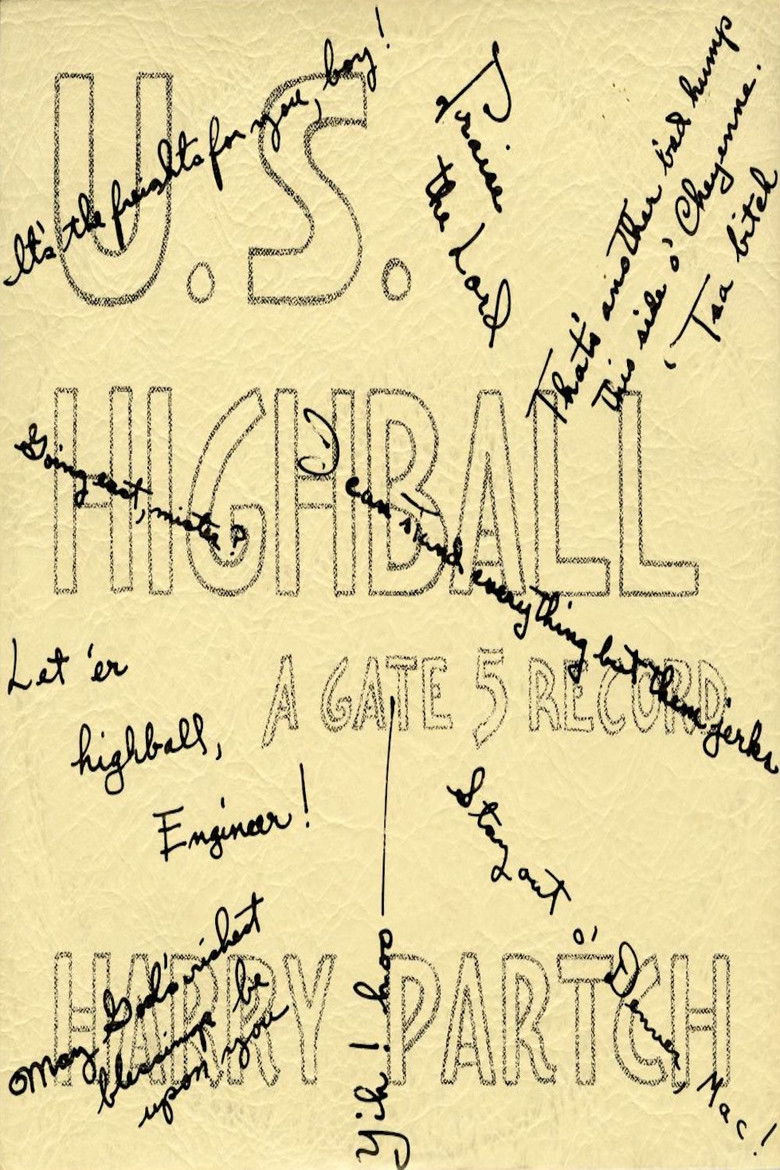 U.S.
HIGHBALL
A GATE 5 RECORD
HARRY PARTCH
It's the freights for you, boy!
Praise
the Lord
That's another bad hump
this side o' Cheyenne.
'Tsa bitch
Going east, mister?
I can stand everything but them jerks
Let 'er
highball,
Engineer!
Stay out o' Denver, Mac!
May God's richest
blessings be
upon you
Yih! hoo